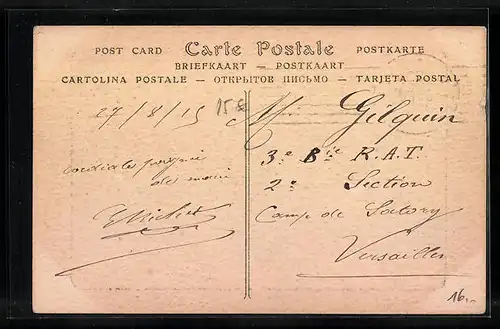 POST CARD Carte Postale POSTKARTE
BRIEFKAART — POSTKAART
CARTOLINA POSTALE — ОТКРЫТОЕ ПИСЬМО — TARJETA POSTAL
27/8/15
15 €
Mr Gilquin
3e Bie R.A.T.
2e Section
Camp de Satory
Versailles
cordiale poignée
de main
16.-